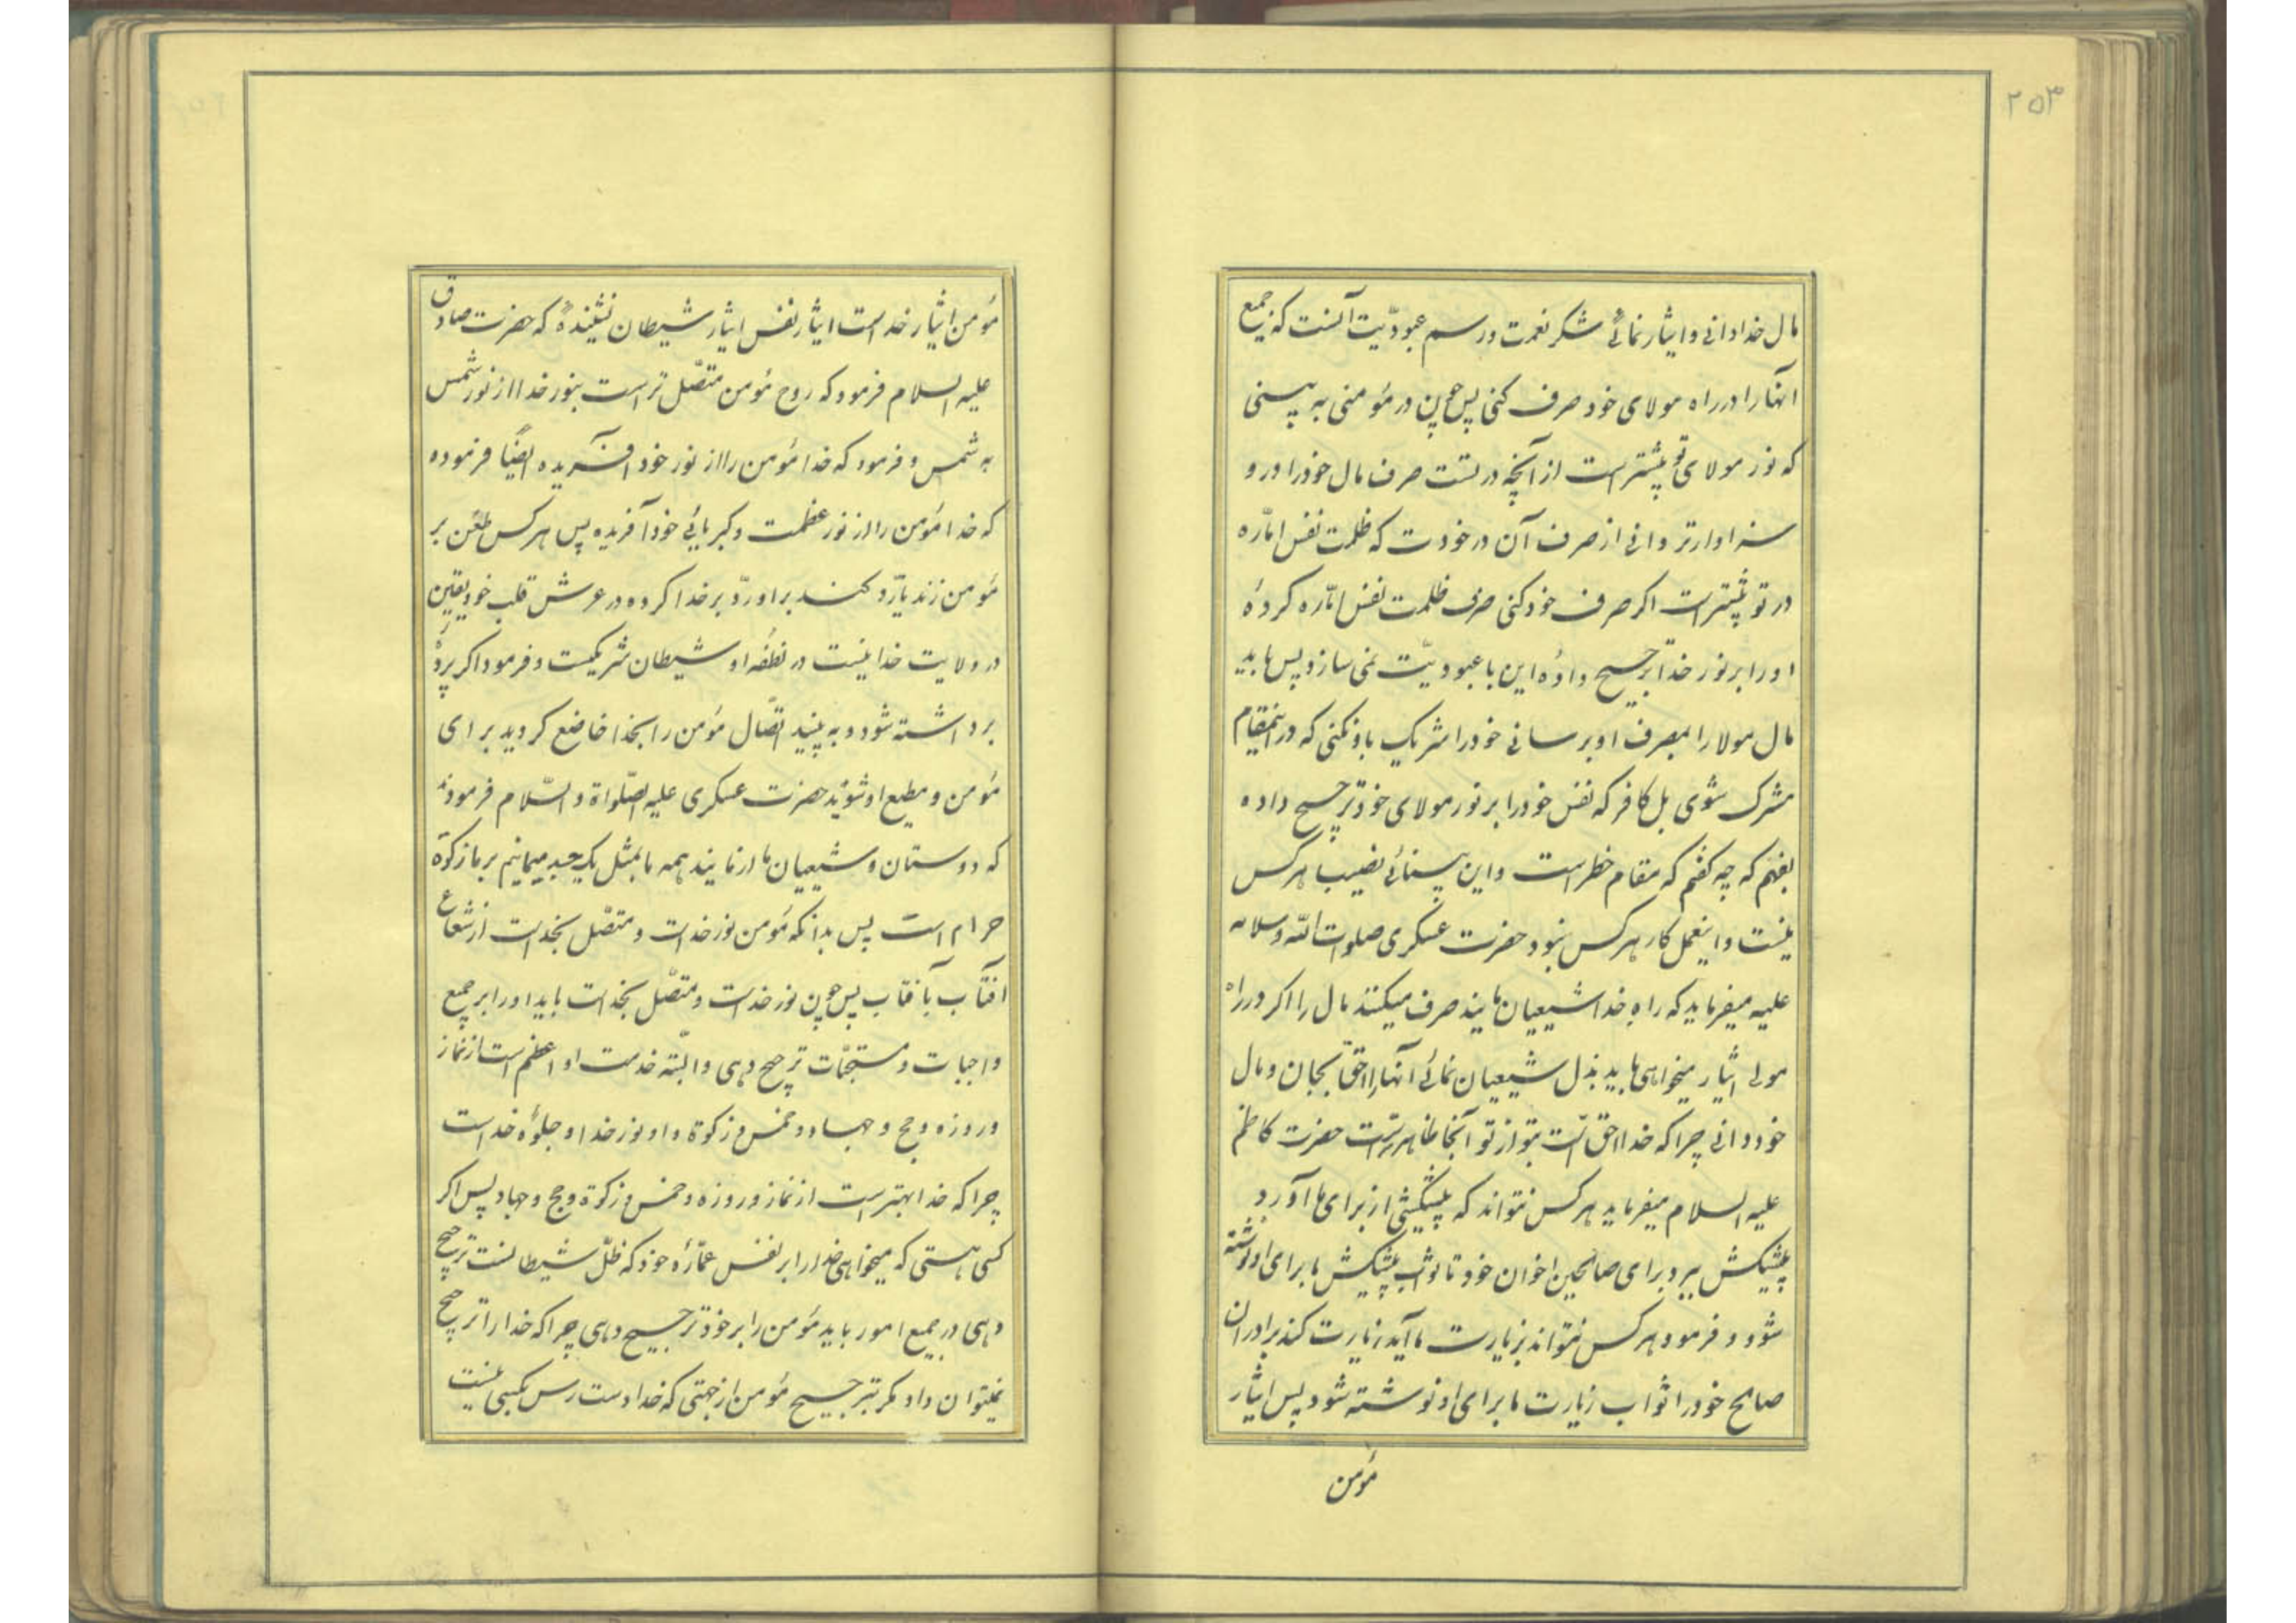 ۲۵۳
مال خدا دانی و ایثار نمائی شکر نعمت و رسم عبودیّت آنست که جمیع
آنها را در راه مولای خود صرف کنی پس چون در مؤمنی به بینی
که نور مولای تو بیشتر است از آنچه در تست صرف مال خود را در و
سزاوارتر دانی از صرف آن در خودت که ظلمت نفس امّاره
در تو بیشتر است اکر صرف خود کنی صرف ظلمت نفس امّاره کردهٔ
او را بر نور خدا ترجیح دادهٔ این با عبودیّت نمی سازد پس باید
مال مولا را بمصرف او برسانی خود را شریک با و نکنی که در اینمقام
مشرک شوی بل کافر که نفس خود را بر نور مولای خود ترجیح داده
بفهم که چه کفتم که مقام خطر است و این بینائی نصیب هرکس
نیست و اینعمل کار هرکس نبود حضرت عسکری صلوات الله و سلامه
علیه میفرماید که راه خدا شیعیان مایند صرف میکنند مال را اکر در راه
مولی ایثار میخواهی باید بذل شیعیان نمائی آنها را احقّ بجان و مال
خود دانی چرا که خدا احق است بتو از تو آنجا ظاهرتر است حضرت کاظم
علیه السلام میفرماید هرکس نتواند که پیشکشی از برای ما آورد
پیشکش ببرد برای صالحین اخوان خود تا ثواب پیشکش ما برای او نوشته
شود و فرمود هرکس نتواند بزیارت ما آید زیارت کند برادران
صالح خود را ثواب زیارت ما برای او نوشته شود پس ایثار
مؤمن
مؤمن ایثار خداست ایثار نفس ایثار شیطان نشنیدهٔ که حضرت صادق
علیه السلام فرمود که روح مؤمن متصّل تر است بنور خدا از نور شمس
به شمس و فرمود که خدا مؤمن را از نور خود آفریده ایضاً فرموده
که خدا مؤمن را از نور عظمت و کبریائی خود آفریده پس هرکس طعن بر
مؤمن زند یا ردّ کند بر او ردّ بر خدا کرده در عرش قلب خود یقین
در ولایت خدا نیست در نطفه او شیطان شریکست و فرمود اکر پرده
برداشته شود و به بینید اتّصال مؤمن را بخدا خاضع کردید برای
مؤمن و مطیع او شوید حضرت عسکری علیه الصّلواة و السّلام فرمودند
که دوستان و شیعیان ما از مایند همه ما بمثل یک جسد میمانیم بر ما زکوة
حرام است پس بدانکه مؤمن نور خداست و متصّل بخداست از شعاع
آفتاب بآفتاب پس چون نور خداست و متصّل بخداست باید او را بر جمیع
واجبات و مستحبّات ترجیح دهی و البّته خدمت او اعظم است از نماز
و روزه و حج و جهاد و خمس و زکوة و او نور خدا و جلوهٔ خداست
چرا که خدا بهتر است از نماز و روزه و خمس و زکوة و حج و جهاد پس اکر
کسی هستی که میخواهی خدا را بر نفس عمّارهٔ خود که ظلّ شیطانست ترجیح
دهی در جمیع امور باید مؤمن را بر خود ترجیح دهی چرا که خدا را ترجیح
نمیتوان داد مکر بترجیح مؤمن از جهتی که خدا دست رس بکسی نیست